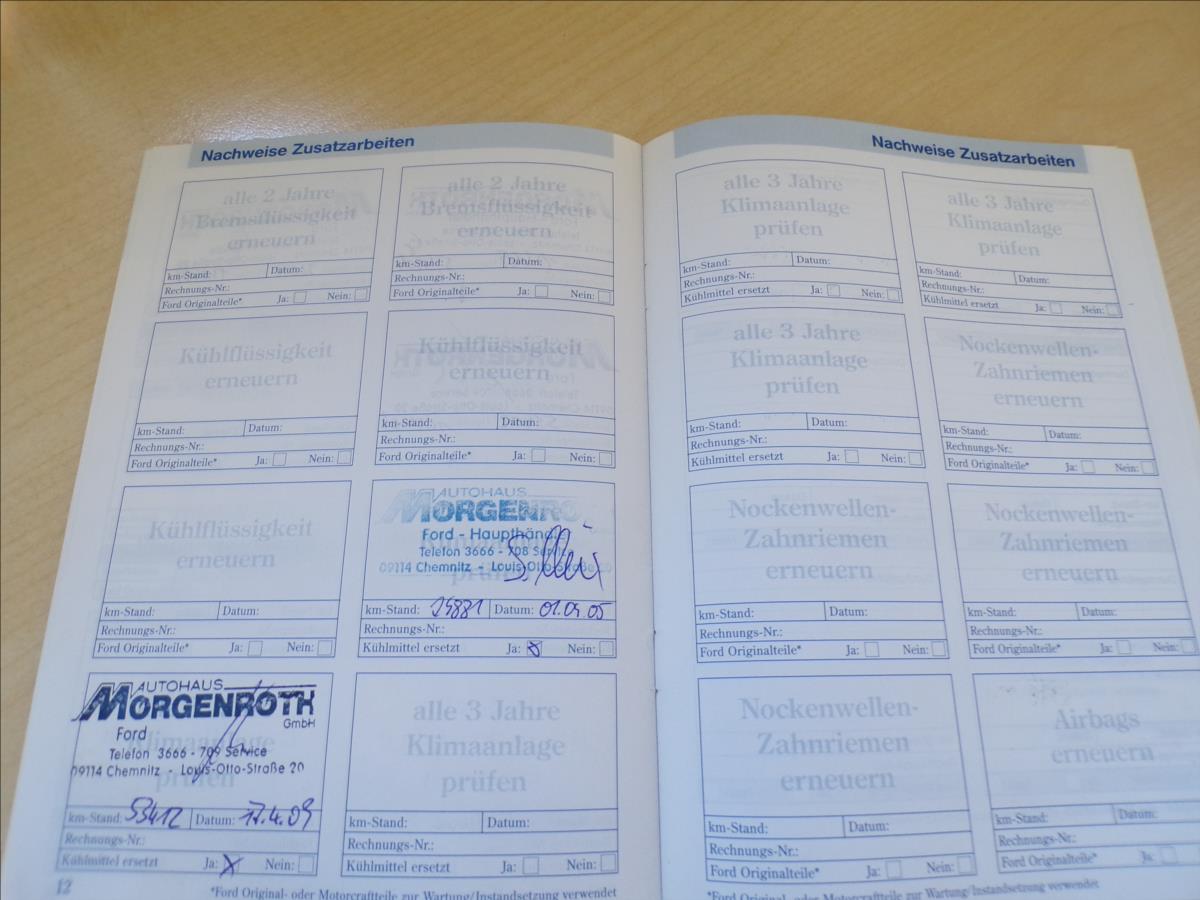 Nachweise Zusatzarbeiten
alle 2 Jahre
Bremsflüssigkeit
erneuern
km-Stand: Datum:
Rechnungs-Nr.:
Ford Originalteile* Ja: Nein:
alle 2 Jahre
Bremsflüssigkeit
erneuern
km-Stand: Datum:
Rechnungs-Nr.:
Ford Originalteile* Ja: Nein:
Kühlflüssigkeit
erneuern
km-Stand: Datum:
Rechnungs-Nr.:
Ford Originalteile* Ja: Nein:
Kühlflüssigkeit
erneuern
km-Stand: Datum:
Rechnungs-Nr.:
Ford Originalteile* Ja: Nein:
Kühlflüssigkeit
erneuern
km-Stand: Datum:
Rechnungs-Nr.:
Ford Originalteile* Ja: Nein:
AUTOHAUS
MORGENRO
Ford - Haupthändle
Telefon 3666 - 708 Service
09114 Chemnitz - Louis-Otto-Straße 20
prüfen
km-Stand: Datum: 01.04.05
Rechnungs-Nr.:
Kühlmittel ersetzt Ja: Nein:
AUTOHAUS
MORGENROTH
GmbH
Ford
Telefon 3666 - 709 Service
09114 Chemnitz - Louis-Otto-Straße 20
prüfen
km-Stand: 53412 Datum: 17.4.09
Rechnungs-Nr.:
Kühlmittel ersetzt Ja: Nein:
alle 3 Jahre
Klimaanlage
prüfen
km-Stand: Datum:
Rechnungs-Nr.:
Kühlmittel ersetzt Ja: Nein:
12
*Ford Original- oder Motorcraftteile zur Wartung/Instandsetzung verwendet
Nachweise Zusatzarbeiten
alle 3 Jahre
Klimaanlage
prüfen
km-Stand: Datum:
Rechnungs-Nr.:
Kühlmittel ersetzt Ja: Nein:
alle 3 Jahre
Klimaanlage
prüfen
km-Stand: Datum:
Rechnungs-Nr.:
Kühlmittel ersetzt Ja: Nein:
alle 3 Jahre
Klimaanlage
prüfen
km-Stand: Datum:
Rechnungs-Nr.:
Kühlmittel ersetzt Ja: Nein:
Nockenwellen-
Zahnriemen
erneuern
km-Stand: Datum:
Rechnungs-Nr.:
Ford Originalteile* Ja: Nein:
Nockenwellen-
Zahnriemen
erneuern
km-Stand: Datum:
Rechnungs-Nr.:
Ford Originalteile* Ja: Nein:
Nockenwellen-
Zahnriemen
erneuern
km-Stand: Datum:
Rechnungs-Nr.:
Ford Originalteile* Ja: Nein:
Nockenwellen-
Zahnriemen
erneuern
km-Stand: Datum:
Rechnungs-Nr.:
Ford Originalteile* Ja: Nein:
Airbags
erneuern
km-Stand: Datum:
Rechnungs-Nr.:
Ford Originalteile* Ja:
*Ford Original- oder Motorcraftteile zur Wartung/Instandsetzung verwendet